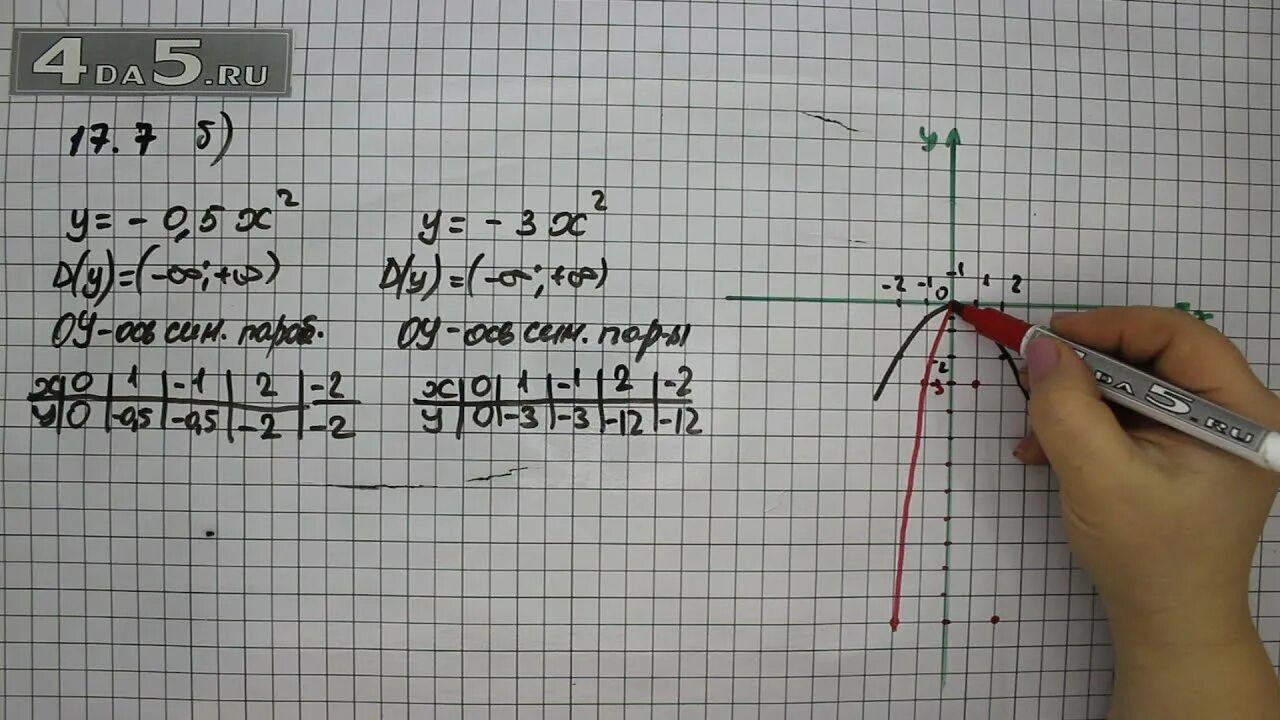 4DA5.RU
17.7 б)
y = - 0,5 x²
D(y)=(-∞;+∞)
ОУ-ось сим. параб.
x 0 1 -1 2 -2
y 0 -0,5 -0,5 -2 -2
y = - 3 x²
D(y)=(-∞;+∞)
ОУ-ось сим. пар-ы
x 0 1 -1 2 -2
y 0 -3 -3 -12 -12
y
1
-2 -1 0 1 2
x
-2
-3
DA5.RU